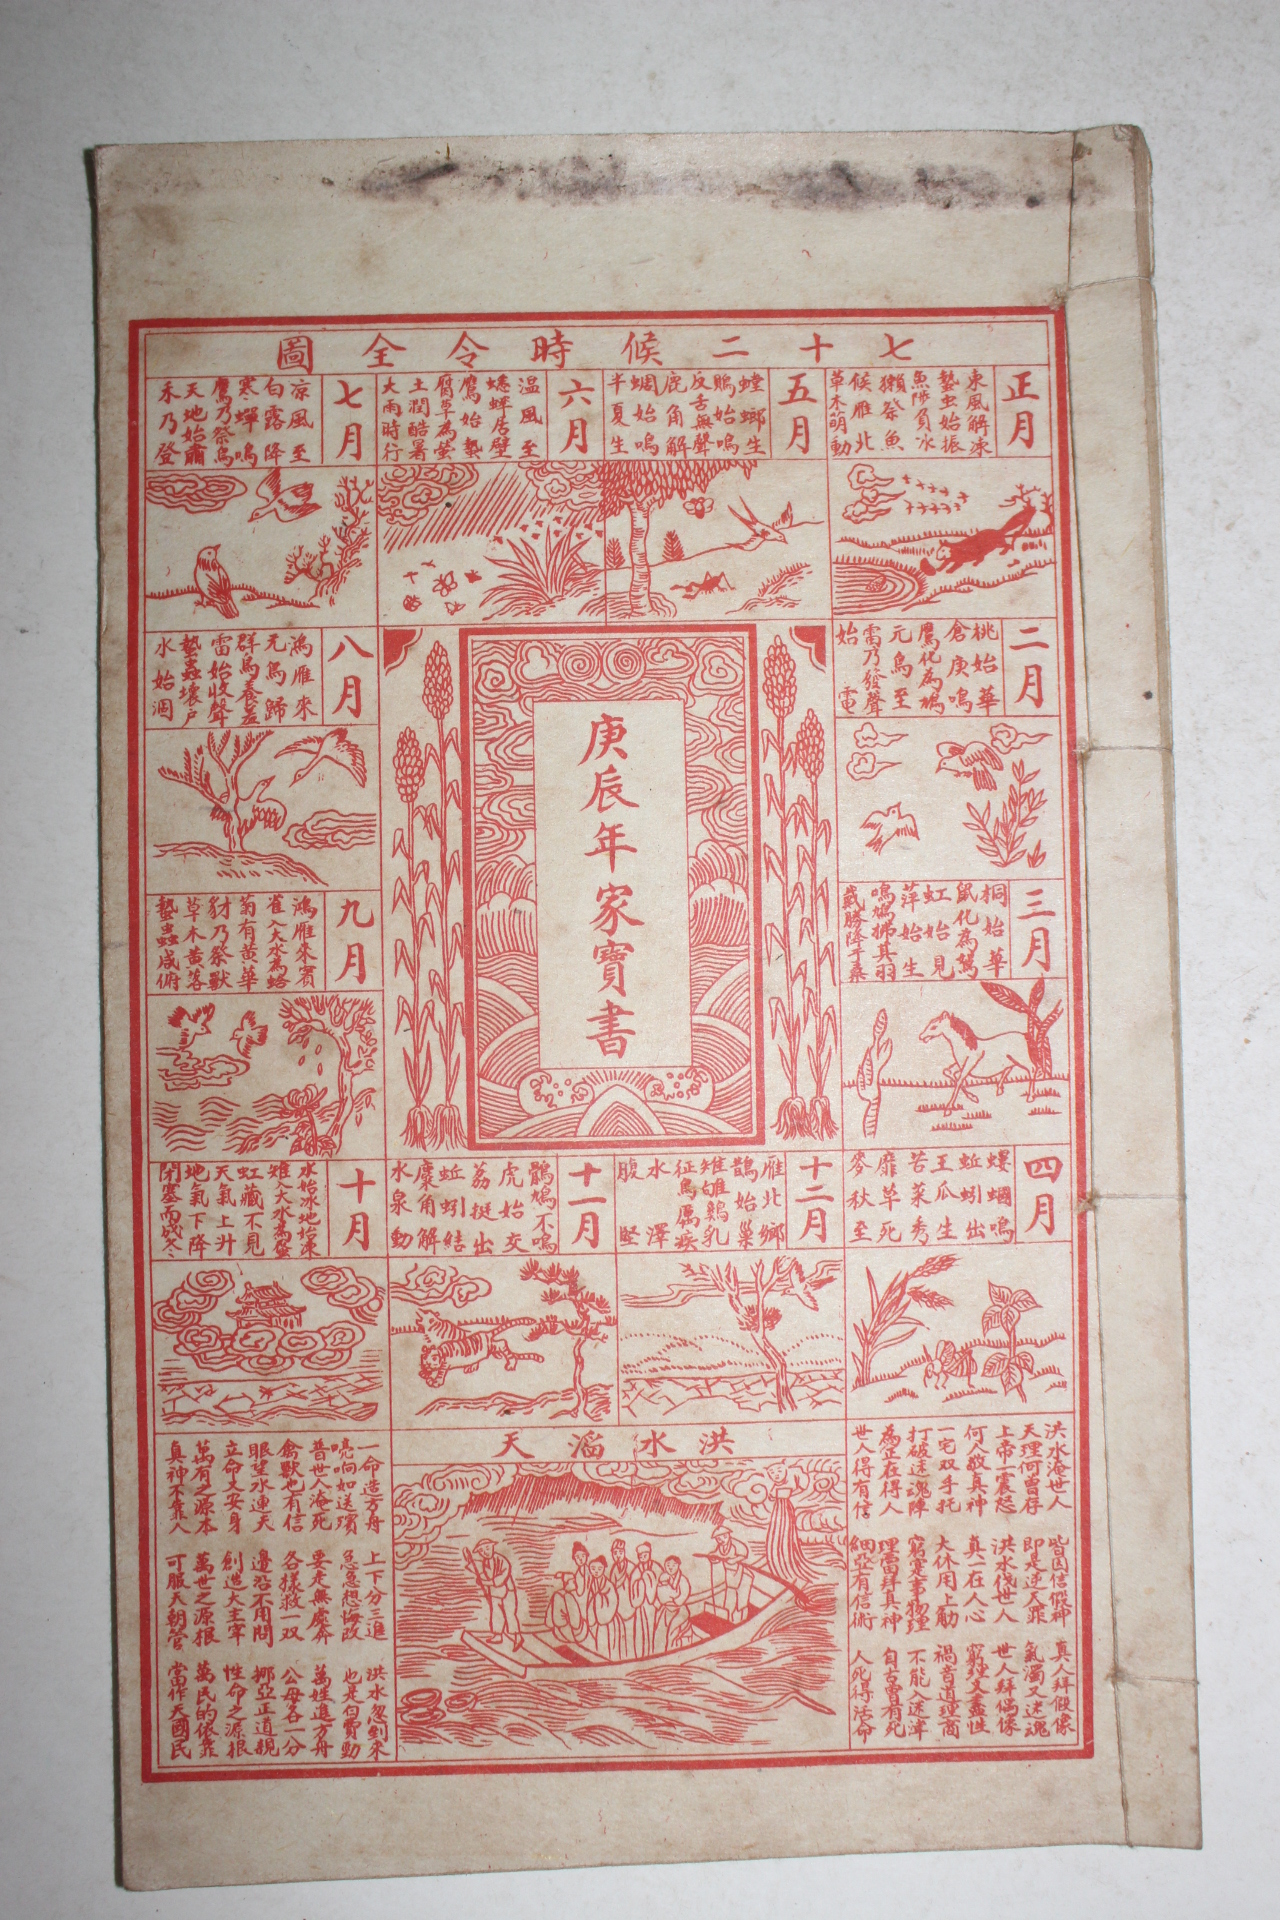 七十二候時令全圖
正月
東風解凍
蟄虫始振
魚陟負冰
獺祭魚
候雁北
草木萌動
五月
螳螂生
鵙始鳴
反舌無聲
鹿角解
蜩始鳴
半夏生
六月
温風至
蟋蟀居壁
鷹始摯
腐草為螢
土潤酷暑
大雨時行
七月
凉風至
白露降
寒蟬鳴
鷹乃祭鳥
天地始肅
禾乃登
二月
桃始華
倉庚鳴
鷹化為鳩
元鳥至
雷乃發聲
始電
八月
鴻雁來
元鳥歸
群鳥養羞
雷始收聲
蟄蟲壞戶
水始涸
庚辰年家寶書
三月
桐始華
鼠化為鴽
虹始見
萍始生
鳴鳩拂其羽
戴勝降于桑
九月
鴻雁來賓
雀入大水為蛤
菊有黃華
豺乃祭獸
草木黃落
蟄蟲咸俯
四月
螻蟈鳴
蚯蚓出
王瓜生
苦菜秀
靡草死
麥秋至
十二月
雁北鄉
鵲始巢
雉雊鷄乳
征鳥厲疾
水澤
腹堅
十一月
鶡鴠不鳴
虎始交
荔挺出
蚯蚓結
麋角解
水泉動
十月
水始冰地始凍
雉入大水為蜃
虹藏不見
天氣上升
地氣下降
閉塞而成冬
洪水滔天
洪水淹世人 皆因信假神 真人拜假像
天理何曾存 即是逆天罪 氣濁又迷魂
上帝一震怒 洪水伐世人 世人拜偶像
何人敬真神 真一在人心 窮理又盡性
一宅双手托 大休用上肋 福音道理商
打破迷魂陣 窮究事物理 不能入迷津
為正在得人 理當拜真神 自古曾有死
世人得有信 細亞有信術 人死得活命
一命造方舟 上下分三進 洪水忽到來
喨响如送殯 急急想悔改 也是白費勁
普世人淹死 要走無處奔 萬姓進方舟
禽獸也有信 各樣救一双 公母各一分
眼望水連天 邊沿不用問 挪亞正道親
立命又安身 創造大主宰 性命之源根
萬有之源本 萬世之源根 萬民的依靠
真神不靠人 可服天朝管 當作天國民